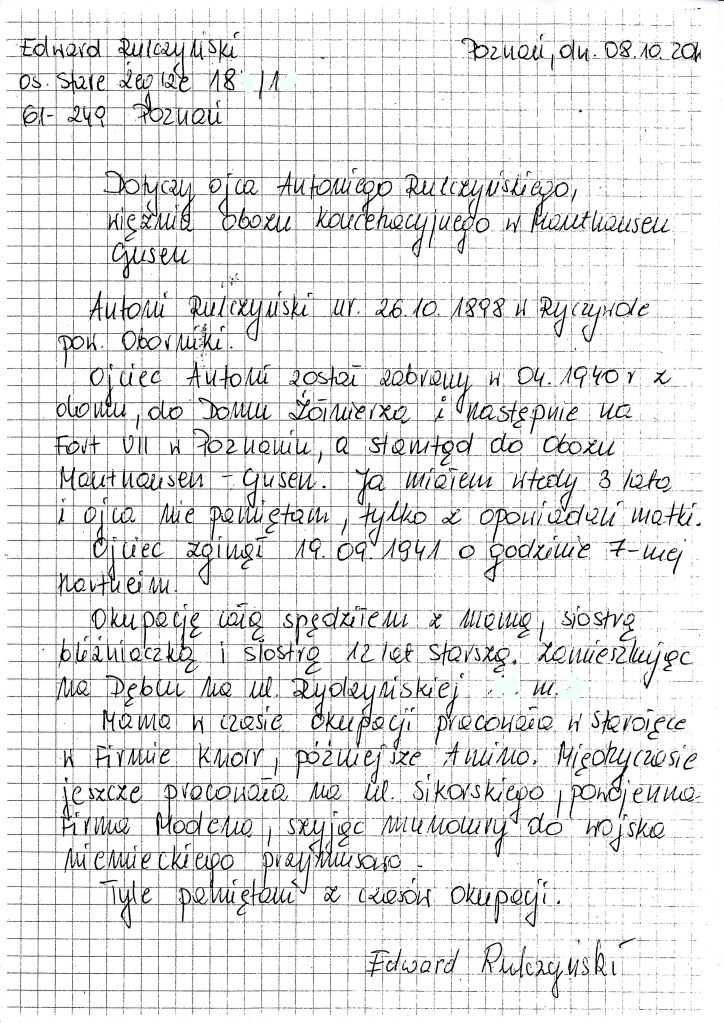 Edward Rulczyński
Poznań, dn. 08.10.20
os. Stare Żegrze 18 /1
61-249 Poznań
Dotyczy ojca Antoniego Rulczyńskiego,
więźnia obozu koncetracyjnego w Mauthausen
Gusen
Antoni Rulczyński ur. 26.10.1898 w Ryczywole
pow. Oborniki.
Ojciec Antoni został zabrany w 04.1940 r z
domu, do Domu Żołnierza i następnie na
Fort VII w Poznaniu, a stamtąd do obozu
Mauthausen - Gusen. Ja miałem wtedy 3 lata
i ojca nie pamiętam, tylko z opowiadań matki.
Ojciec zginął 19.09.1941 o godzinie 7-mej
Hartheim.
Okupację całą spędziłem z mamą, siostrą
bliźniaczką i siostrą 12 lat starszą. Zamieszkując
na Dębcu na ul. Rydzyńskiej m.
Mama w czasie okupacji pracowała w Starołęce
w Firmie Knorr, późniejsze Amino. Międzyczasie
jeszcze pracowała na ul. Sikorskiego, powojenna
Firma Modena, szyjąc mundury do wojska
niemieckiego przymusowo.
Tyle pamiętam z czasów okupacji.
Edward Rulczyński